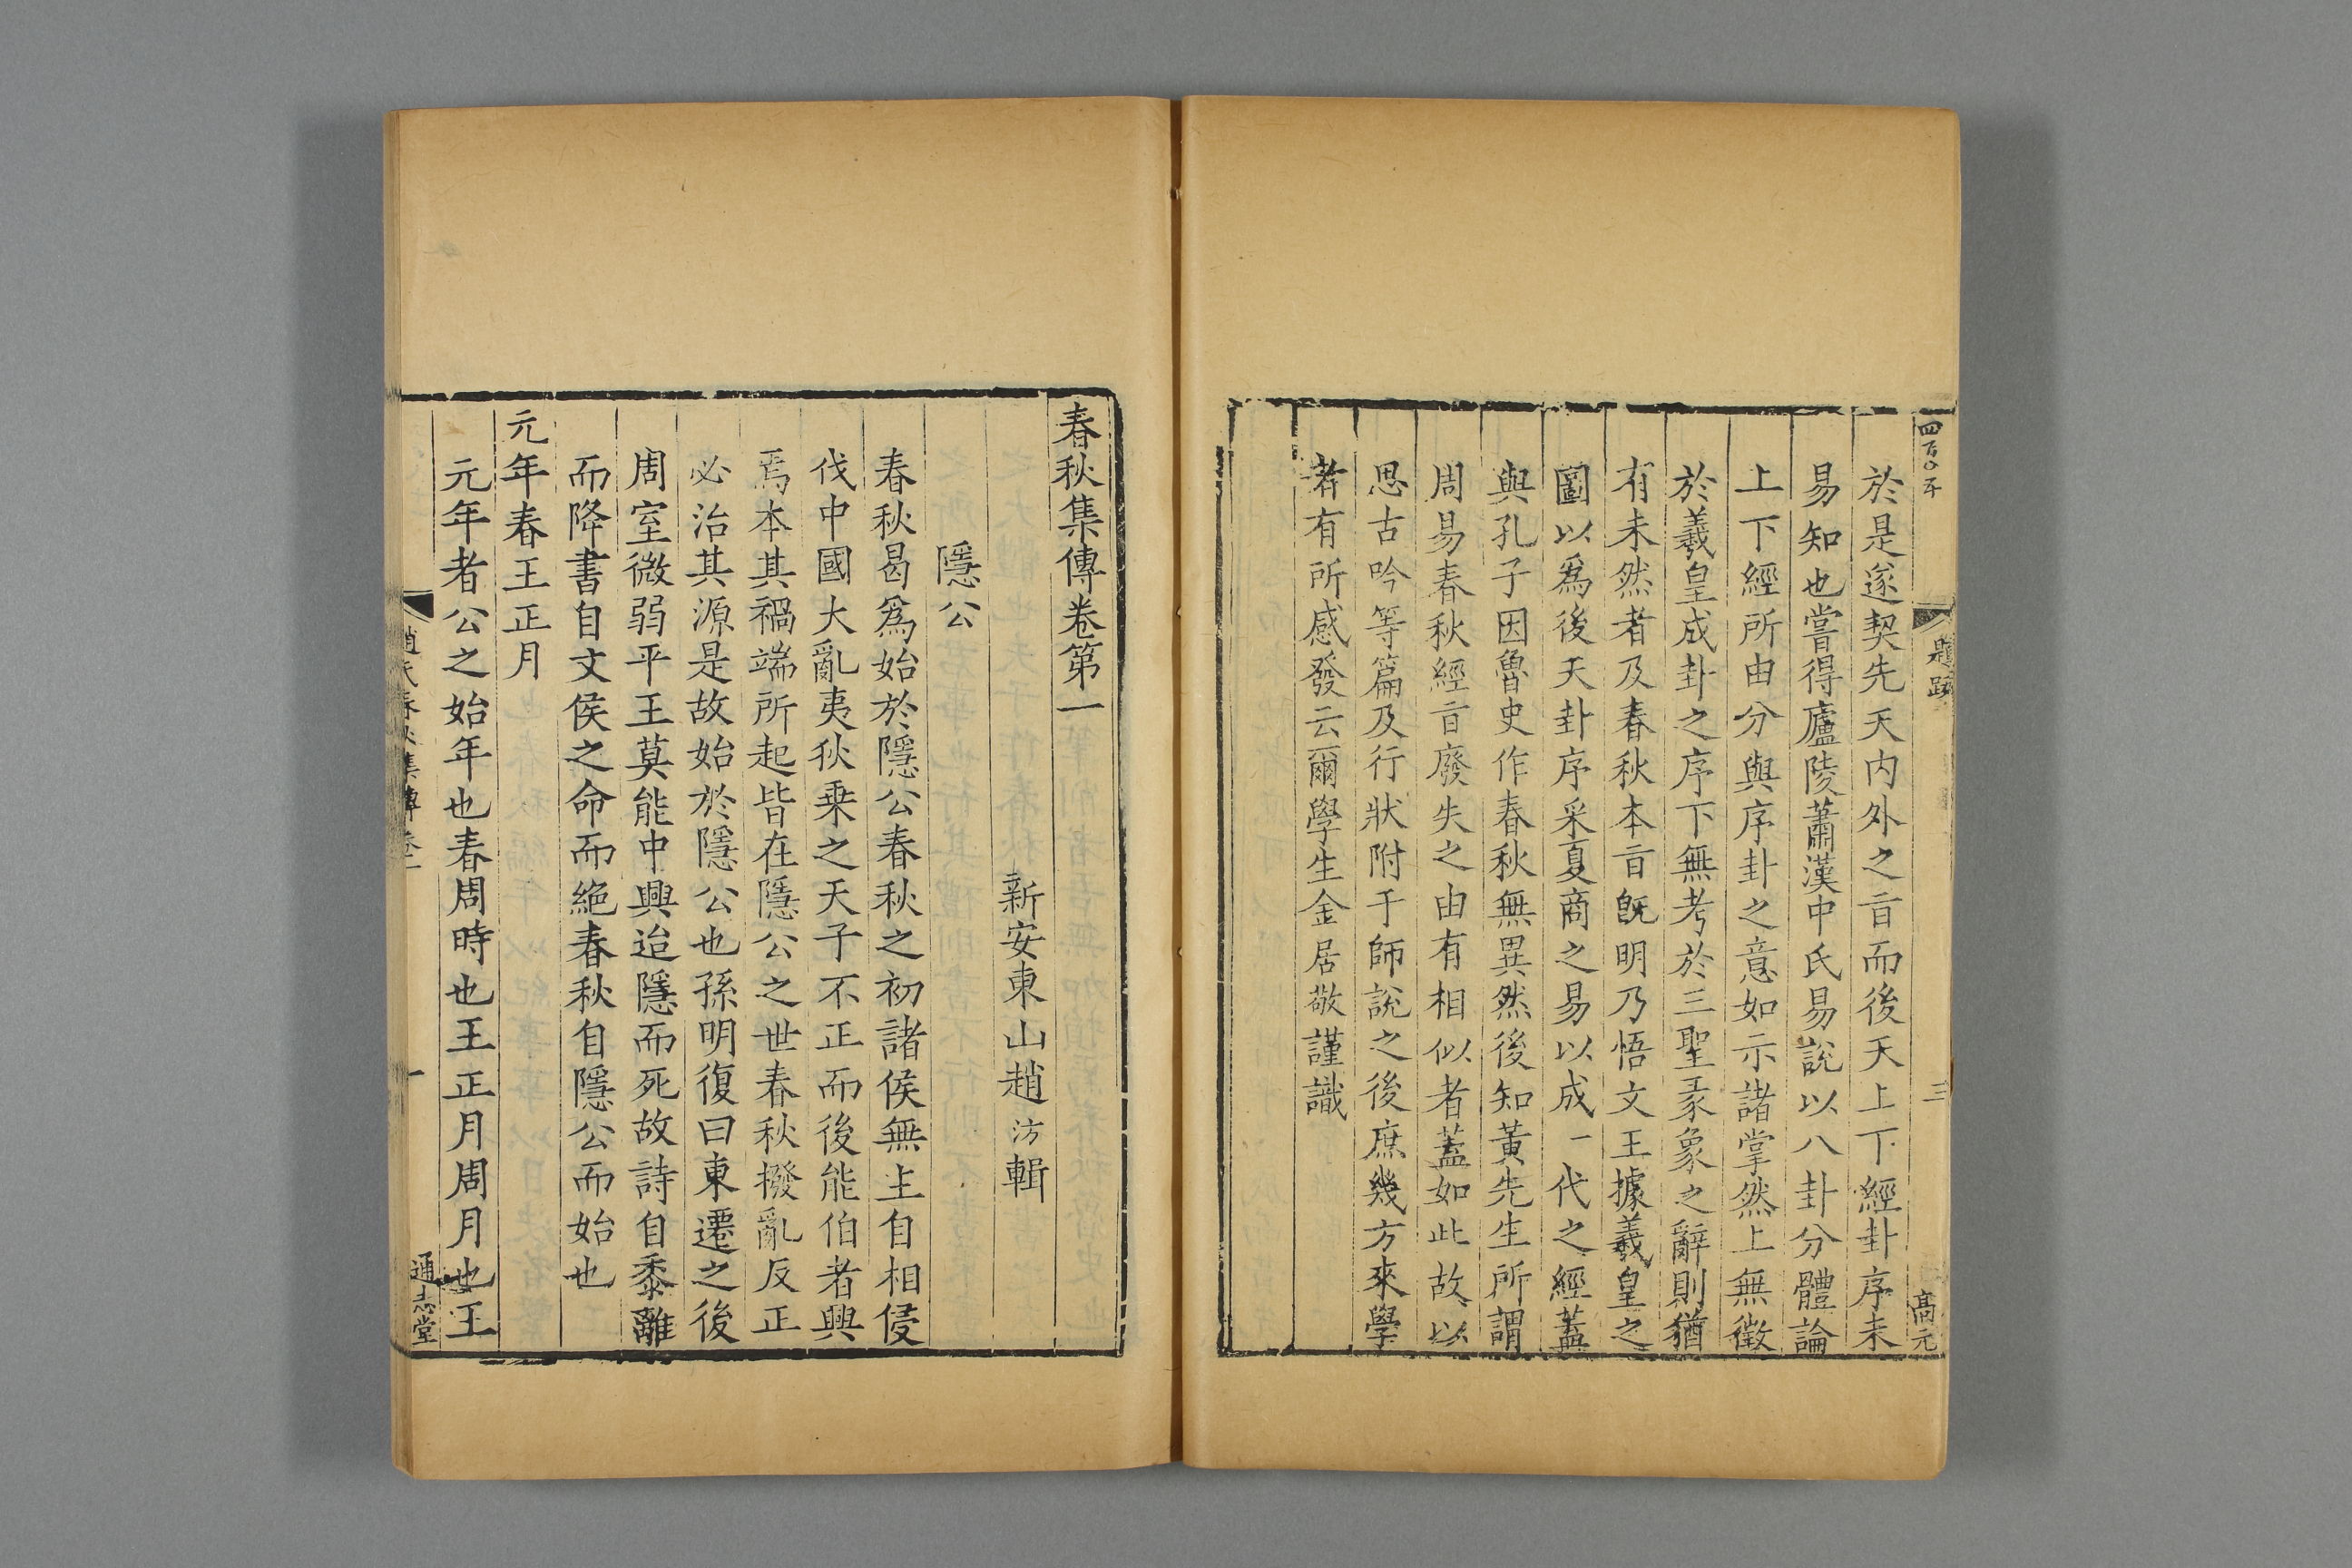 四百〇五
題跋
三
高元
於是遂契先天内外之㫖而後天上下經卦序未
易知也嘗得廬陵蕭漢中氏易說以八卦分體論
上下經所由分與序卦之意如示諸掌然上無徵
於羲皇成卦之序下無考於三聖彖象之辭則猶
有未然者及春秋本㫖旣明乃悟文王據羲皇之
圖以爲後天卦序采夏商之易以成一代之經蓋
與孔子因魯史作春秋無異然後知黃先生所謂
周易春秋經㫖廢失之由有相似者蓋如此故以
思古吟等篇及行狀附于師說之後庶幾方來學
者有所感發云爾學生金居敬謹識
春秋集傳卷第一
新安東山趙汸輯
隱公
春秋曷爲始於隱公春秋之初諸侯無主自相侵
伐中國大亂夷狄乗之天子不正而後能伯者興
焉本其禍端所起皆在隱公之世春秋撥亂反正
必治其源是故始於隱公也孫明復曰東遷之後
周室微弱平王莫能中興迨隱而死故詩自黍離
而降書自文侯之命而絕春秋自隱公而始也
元年春王正月
元年者公之始年也春周時也王正月周月也王
趙氏春秋集傳卷一
一
通志堂